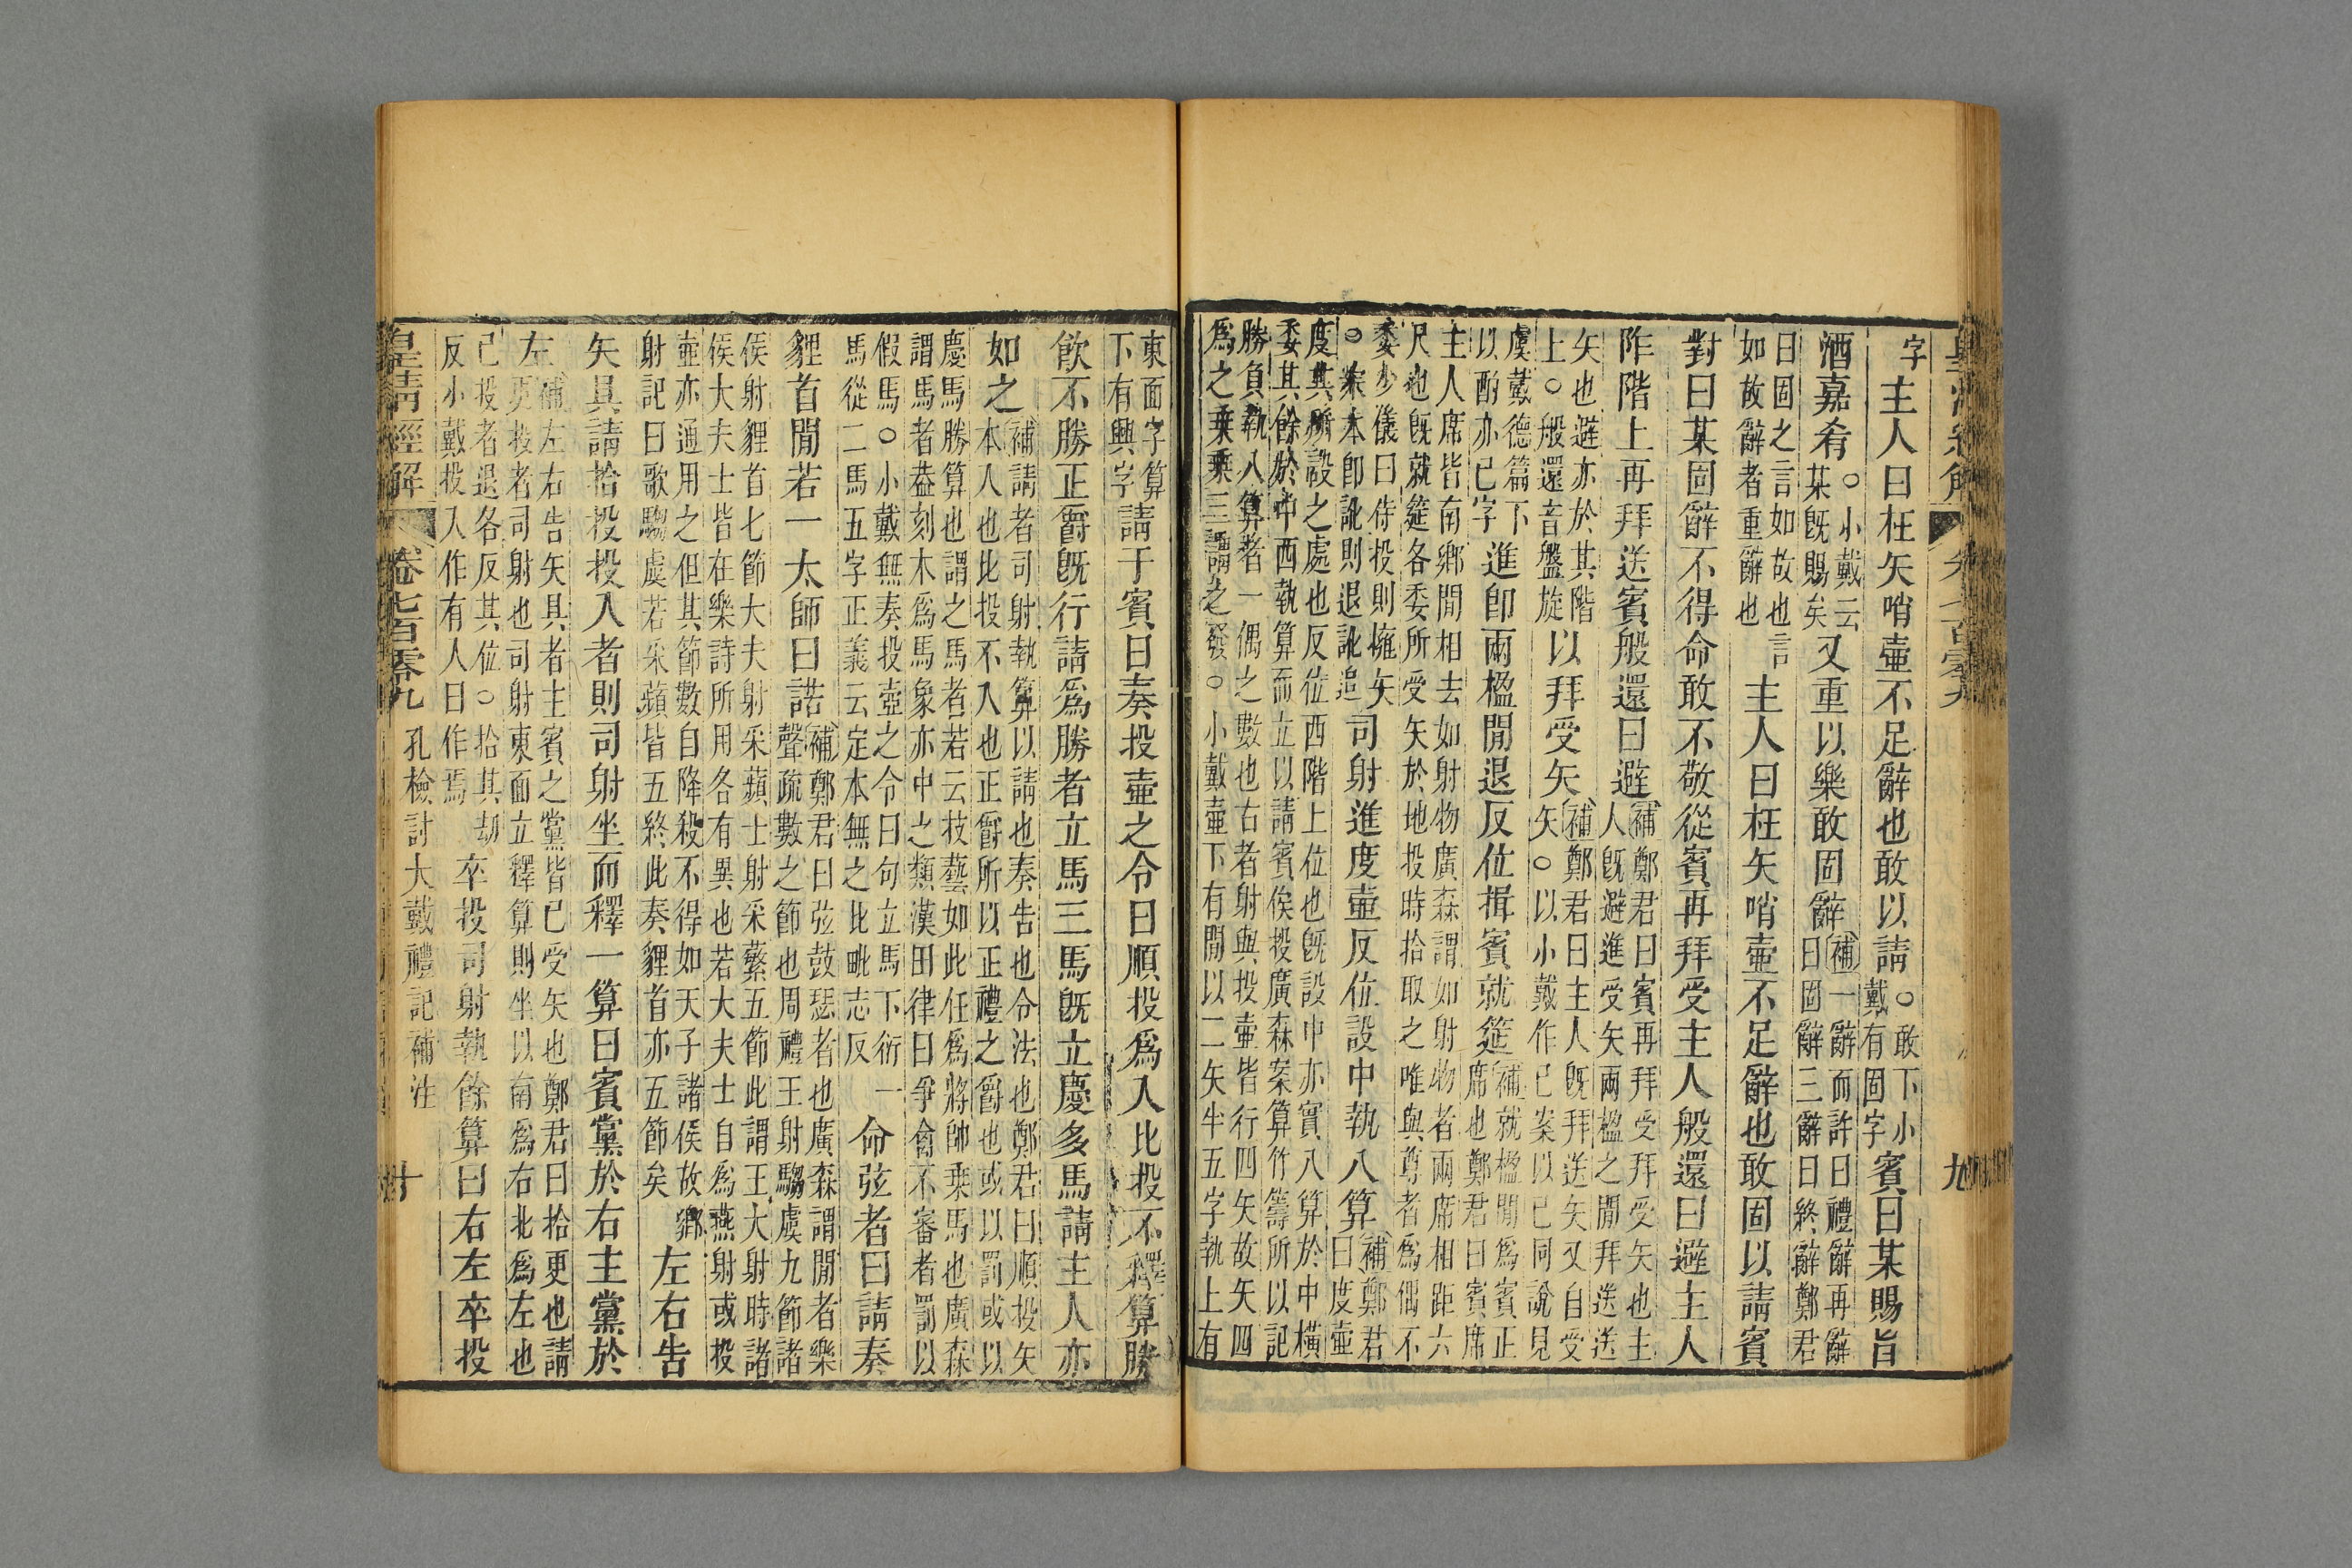 字主人曰枉矢哨壺不足辭也敢以請○敢下小戴有固字賓曰某賜旨
酒嘉肴○小戴云某旣賜矣又重以樂敢固辭補一辭而許曰禮辭再辭曰固辭三辭曰終辭鄭君
曰固之言如故也言如故辭者重辭也主人曰枉矢哨壺不足辭也敢固以請賓
對曰某固辭不得命敢不敬從賓再拜受主人般還曰避主人
阼階上再拜送賓般還曰避補鄭君曰賓再拜受拜受矢也主人旣避進受矢兩楹之閒拜送送
矢也避亦於其階上○般還音盤旋以拜受矢補鄭君曰主人旣拜送矢又自受矢○以小戴作已案以已同說見
虞戴德篇下以酌亦已字進卽兩楹閒退反位揖賓就筵補就楹閒爲賓正席也鄭君曰賓席
主人席皆南鄉閒相去如射物廣森謂如射物者兩席相距六尺也旣就筵各委所受矢於地投時拾取之唯與尊者爲偶不
委少儀曰侍投則擁矢○案本卽訛則退訛追司射進度壺反位設中執八算補鄭君曰度壺
度其所設之處也反位西階上位也旣設中亦實八算於中橫委其餘於中西執算而立以請賓俟投廣森案算竹籌所以記
勝負執八算者一偶之數也古者射與投壺皆行四矢故矢四爲之乘乘三謂之發○小戴壺下有閒以二矢半五字執上有
東面字算下有興字請于賓曰奏投壺之令曰順投爲入比投不釋算勝
飮不勝正爵旣行請爲勝者立馬三馬旣立慶多馬請主人亦
如之補請者司射執算以請也奏告也令法也鄭君曰順投矢本人也比投不入也正爵所以正禮之爵也或以罰或以
慶馬勝算也謂之馬者若云技藝如此任爲將帥乘馬也廣森謂馬者葢刻木爲馬象亦中之類漢田律曰爭禽不審者罰以
假馬○小戴無奏投壺之令曰句立馬下衍一馬從二馬五字正義云定本無之比毗志反命弦者曰請奏
貍首閒若一太師曰諾補鄭君曰弦鼓瑟者也廣森謂閒者樂聲疏數之節也周禮王射騶虞九節諸
侯射貍首七節大夫射采蘋士射采蘩五節此謂王大射時諸侯大夫士皆在樂詩所用各有異也若大夫士自爲燕射或投
壺亦通用之但其節數自降殺不得如天子諸侯故鄉射記曰歌騶虞若采蘋皆五終此奏貍首亦五節矣左右告
矢具請拾投投入者則司射坐而釋一算曰賓黨於右主黨於
左補左右告矢具者主賓之黨皆已受矢也鄭君曰拾更也請更投者司射也司射東面立釋算則坐以南爲右北爲左也
已投者退各反其位○拾其劫反小戴投入作有入曰作焉卒投司射執餘算曰右左卒投
皇清經解 卷七百零九 孔檢討大戴禮記補注 十